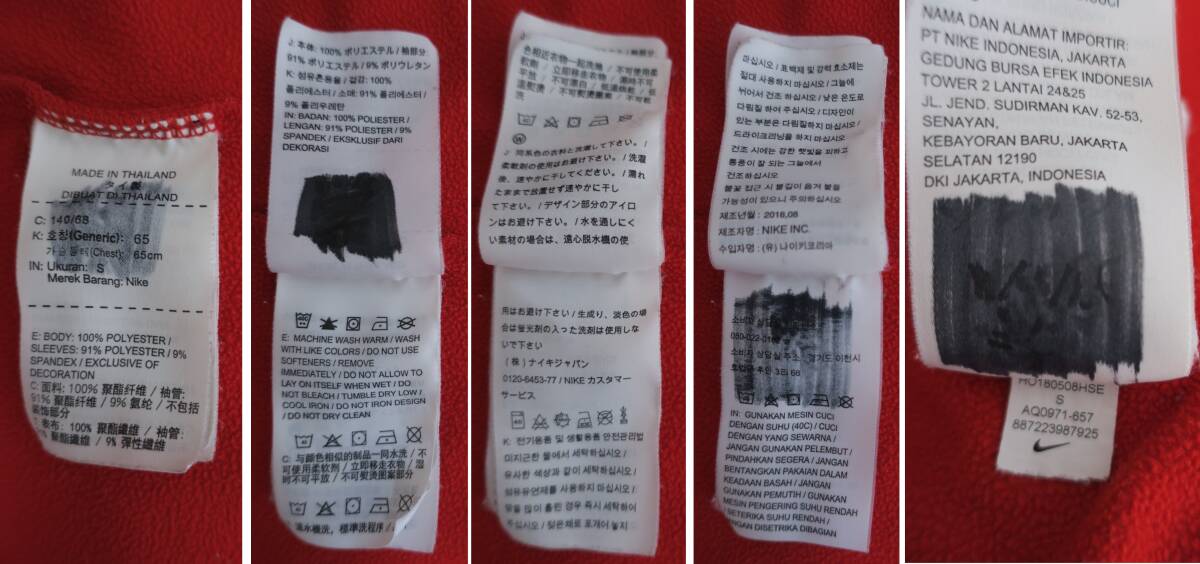 MADE IN THAILAND
タイ製
DIBUAT DI THAILAND
C: 140/68
K: 호칭(Generic): 65
가슴둘레(Chest): 65cm
IN: Ukuran: S
Merek Barang: Nike
E: BODY: 100% POLYESTER /
SLEEVES: 91% POLYESTER / 9%
SPANDEX / EXCLUSIVE OF
DECORATION
C: 面料: 100% 聚酯纤维 / 袖管:
91% 聚酯纤维 / 9% 氨纶 / 不包括
装饰部分
表布: 100% 聚酯纖維 / 袖管:
聚酯纖維 / 9% 彈性纖維
J: 本体: 100% ポリエステル / 袖部分:
91% ポリエステル / 9% ポリウレタン
K: 섬유혼용율 / 겉감: 100%
폴리에스터 / 소매: 91% 폴리에스터 /
9% 폴리우레탄
IN: BADAN: 100% POLIESTER /
LENGAN: 91% POLIESTER / 9%
SPANDEK / EKSKLUSIF DARI
DEKORASI
E: MACHINE WASH WARM / WASH
WITH LIKE COLORS / DO NOT USE
SOFTENERS / REMOVE
IMMEDIATELY / DO NOT ALLOW TO
LAY ON ITSELF WHEN WET / DO
NOT BLEACH / TUMBLE DRY LOW /
COOL IRON / DO NOT IRON DESIGN
/ DO NOT DRY CLEAN
C: 与颜色相似的制品一同水洗 / 不
可使用柔软剂 / 立即移走衣物 / 湿
时不可平放 / 不可熨烫图案部分
温水機洗，標準洗程序 /
色相近衣物一起洗滌 / 不可使用柔
軟劑 / 立即移走衣物 / 濕時不可
平放 / 不可漂白 / 低溫烘乾 / 低
溫熨燙 / 不可熨燙圖案 / 不可乾
洗
J: 同系色の衣料と洗濯して下さい。/
柔軟剤の使用はお避け下さい。/ 洗濯
後、速やかに干してください。/ 濡れ
たままで放置せず速やかに干し
て下さい。/ デザイン部分のアイロ
ンはお避け下さい。/ 水を通しにく
い素材の場合は、遠心脱水機の使
用はお避け下さい / 生成り、淡色の場
合は蛍光剤の入った洗剤は使用しな
いで下さい
(株) ナイキジャパン
0120-6453-77 / NIKE カスタマー
サービス
K: 전기용품 및 생활용품 안전관리법
미지근한 물에서 세탁하십시오 /
유사한 색상과 같이 세탁하십시오 /
섬유유연제를 사용하지 마십시오 /
땀을 많이 흘린 경우 즉시 세탁하여
주십시오 / 젖은채로 포개어 놓지
마십시오 / 표백제 및 강력 효소제는
절대 사용하지 마십시오 / 그늘에
뉘어서 건조 하십시오 / 낮은 온도로
다림질 하여 주십시오 / 디자인이
있는 부분은 다림질하지 마십시오 /
드라이크리닝을 하지 마십시오 /
건조 시에는 강한 햇빛을 피하고
통풍이 잘 되는 그늘에서
건조하십시오
불꽃 접근 시 불길이 옮겨 붙을
가능성이 있으니 주의하십시오
제조년월 : 2018.08
제조자명 : NIKE INC.
수입자명 : (유) 나이키코리아
소비자 상담실
080-022-0182
소비자 상담실 주소 : 경기도 이천시
호법면 주안 3리 68
IN: GUNAKAN MESIN CUCI
DENGAN SUHU (40C) / CUCI
DENGAN YANG SEWARNA /
JANGAN GUNAKAN PELEMBUT /
PINDAHKAN SEGERA / JANGAN
BENTANGKAN PAKAIAN DALAM
KEADAAN BASAH / JANGAN
GUNAKAN PEMUTIH / GUNAKAN
MESIN PENGERING SUHU RENDAH
/ SETERIKA SUHU RENDAH /
JANGAN DISETRIKA DIBAGIAN
NAMA DAN ALAMAT IMPORTIR:
PT NIKE INDONESIA, JAKARTA
GEDUNG BURSA EFEK INDONESIA
TOWER 2 LANTAI 24&25
JL. JEND. SUDIRMAN KAV. 52-53,
SENAYAN,
KEBAYORAN BARU, JAKARTA
SELATAN 12190
DKI JAKARTA, INDONESIA
HO180508HSE
S
AQ0971-657
887223987925